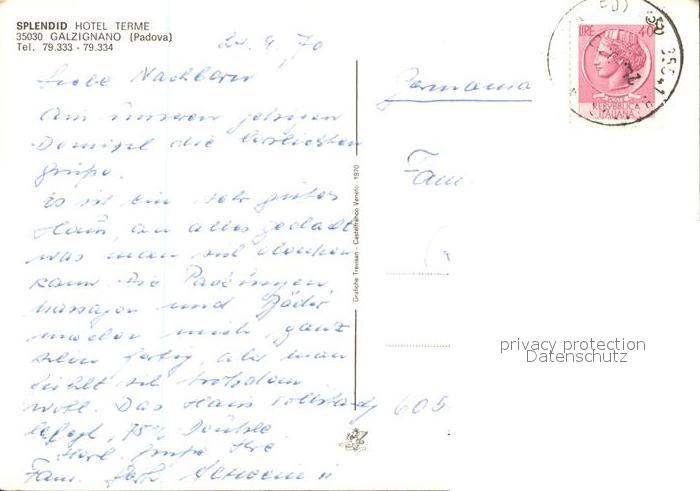 SPLENDID HOTEL TERME
35030 GALZIGNANO (Padova)
Tel. 79.333 - 79.334
4 70
Liebe Nachbarn
Aus unserem jetzigen
Domizil die herzlichsten
Grüße.
Es ist ein sehr gutes
Haus, an alles gedacht
was man sich denken
kann. Die Packungen,
Massagen und Bäder
machen mich ganz
schön fertig, aber man
fühlt sich trotzdem
wohl. Das Haus vollständig
belegt, 75%
Herzl. Grüße Ihre
Fam.
Grafiche Trevisan - Castelfranco Veneto 1970
Germania
Fam.
605
LIRE 40
REPVBBLICA
ITALIANA
privacy protection
Datenschutz